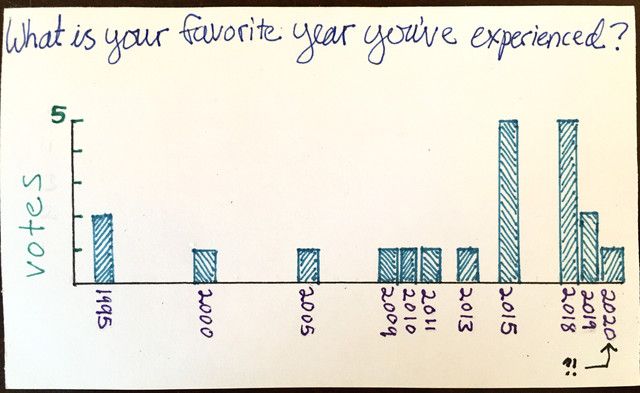 What is your favorite year you've experienced?
5
votes
1995
2000
2005
2009
2010
2011
2013
2015
2018
2019
2020
!!